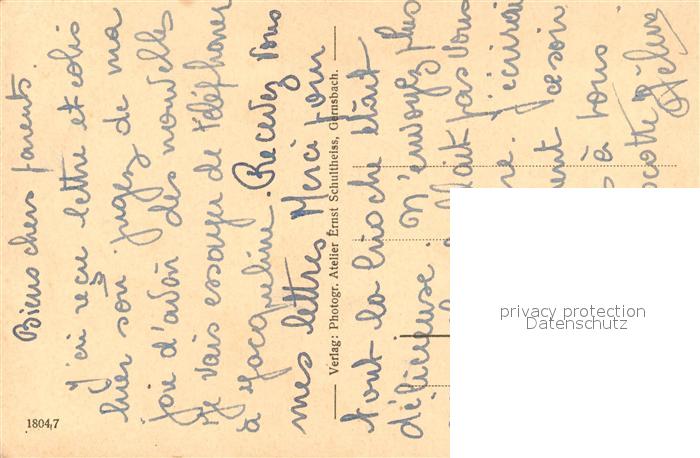 Biens chers parents.
J'ai reçu lettre et colis
hier soir jugez de ma
joie d'avoir des nouvelles
Je vais essayer de téléphoner
à Jacqueline. Recevez vous
mes lettres Merci pour
tout la brioche était
délicieuse. N'envoyez plus
pas vous
J'écrirai
à vous
Verlag: Photogr. Atelier Ernst Schultheiss, Gernsbach.
1804,7
privacy protection
Datenschutz